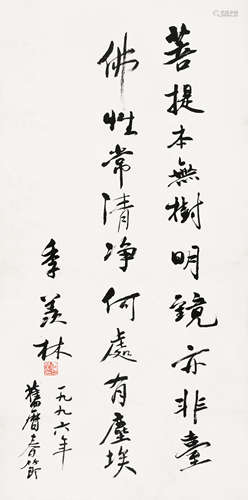 菩提本無樹明鏡亦非臺
佛性常清净何處有塵埃
季羡林
一九九六年
舊曆春節